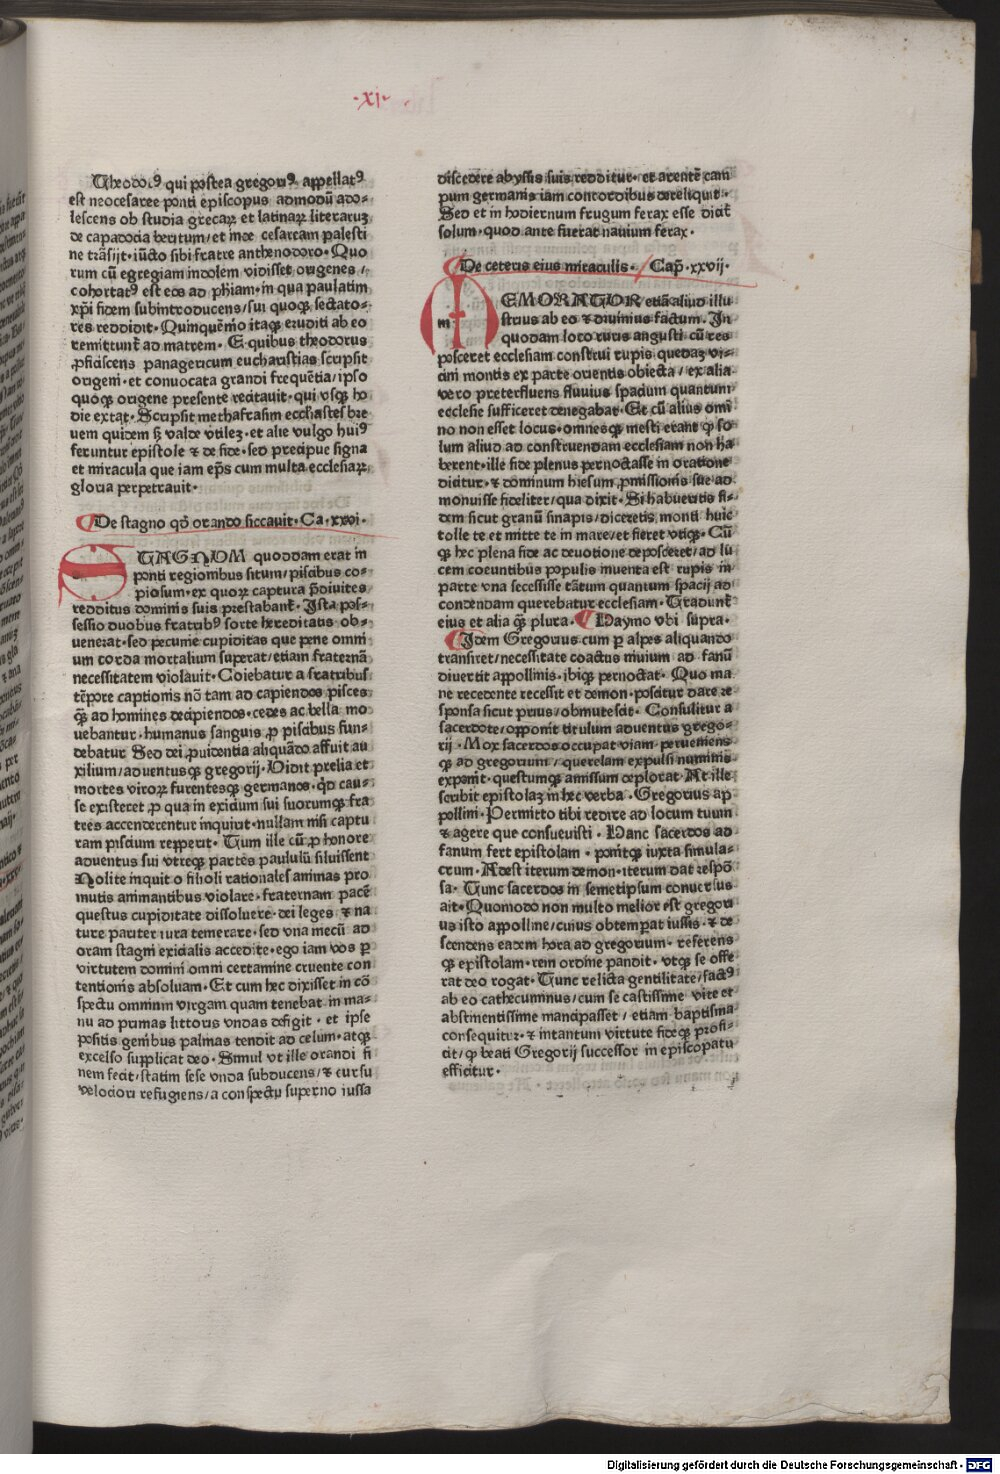 ·xi·
Theodorꝰ qui postea gregoriꝰ appellatꝰ
est neocesaree ponti episcopus admodū ado-
lescens ob studia grecaꝝ et latinaꝝ literaruꝫ
de capadocia beritum/et inde cesaream palesti
ne trāsijt·iūcto sibi fratre anthenodoro·Quo
rum cū egregiam indolem vidisset origenes/
cohortatꝰ est eos ad ph̄iam·in qua paulatim
xp̄i fidem subintroducens/sui quoqꝫ sectato-
res reddidit·Quinquēnio itaqꝫ eruditi ab eo
remittunt̄ ad matrem·E quibus theodorus
ꝓficiscens panagericum eucharistias scripsit
origeni·et conuocata grandi frequētia/ipso
quoqꝫ origene presente recitauit·qui vsqꝫ ho
die extat·Scripsit methafrasim ecclīastes bre
uem quidem sꝫ valde vtileꝫ·et alie vulgo huiꝰ
feruntur epistole ⁊ de fide·sed precipue signa
et miracula que iam ep̄s cum multa ecclesiaꝝ
gloria perpetrauit·
De stagno qd̄ orando siccauit·Ca·xxvi·
STAGNUM quoddam erat in
ponti regionibus situm/piscibus co-
piosum·ex quoꝝ captura p̄diuites
redditus dominis suis prestabant̄·Ista pos-
sessio duobus fratribꝰ sorte hereditatis ob-
uenerat·sed pecunie cupiditas que pene omni
um corda mortalium superat/etiam fraternā
necessitatem violauit·Coiebatur a fratribus
tēpore captionis nō tam ad capiendos pisces
qꝫ ad homines decipiendos·cedes ac bella mo
uebantur·humanus sanguis ꝓ piscibus fun-
debatur Sed dei ꝓuidentia aliquādo affuit au
xilium/aduentusqꝫ gregorij·Uidit prelia et
mortes viroꝝ furentesqꝫ germanos·qd̄ cau-
se existeret ꝓ qua in exicium sui suorumqꝫ fra
tres accenderentur inquirit·nullam nisi captu
ram piscium repperit·Tum ille cū ꝓ honore
aduentus sui vtreqꝫ partes paululū siluissent
Nolite inquit o filioli rationales animas pro
mutis animantibus violare·fraternam pacē
questus cupiditate dissoluere·dei leges ⁊ na
ture pariter iura temerare·sed vna mecū ad
oram stagni exicialis accedite·ego iam vos ꝑ
virtutem domini omni certamine cruente con
tentionis absoluam·Et cum hec dixisset in cō
spectu omnium virgam quam tenebat in ma-
nu ad primas littoris vndas defigit·et ipse
positis genibus palmas tendit ad celum·atqꝫ
excelso supplicat deo·Simul vt ille orandi fi
nem fecit/statim sese vnda subducens/⁊ cursu
velociori refugiens/a conspectu superno iussa
discedere abyssis suis redditur·et arentē cam
pum germanis iam concordibus dereliquit·
Sed et in hodiernum frugum ferax esse dicit̄
solum·quod ante fuerat nauium ferax·
De ceteris eius miraculis· Cap̄·xxvij·
MEMORATUR etiā aliud illu
strius ab eo ⁊ diuinius factum·In
quodam loco ruris angusti cū res
posceret ecclesiam construi rupis quedaꝫ vi-
cini montis ex parte orientis obiecta/ex alia
vero preterfluens fluuius spacium quantum
ecclesie sufficeret denegabat·Et cū alius omi
no non esset locus·omnesqꝫ mesti erant ꝙ so
lum aliud ad construendam ecclesiam non ha
berent·ille fide plenus pernoctasse in oratione
dicitur·⁊ dominum hiesum ꝓmissionis sue ad
monuisse fideliter/qua dixit·Si habueritis fi-
dem sicut granū sinapis/diceretis monti huic
tolle te et mitte te in mare/et fieret vtiqꝫ·Cū
qꝫ hec plena fide ac deuotione deposceret/ad lu
cem coeuntibus populis inuenta est rupis in
parte vna secessisse tātum quantum spacij ad
condendam querebatur ecclesiam·Tradunt̄
eius et alia qꝫ plura· Haymo vbi supra·
Idem Gregorius cum ꝑ alpes aliquando
transiret/necessitate coactus niuium ad fanū
diuertit appollinis·ibiqꝫ pernoctat·Quo ma
ne recedente recessit et demon·poscitur dare re
sponsa sicut prius/obmutescit·Consulitur a
sacerdote/opponit titulum aduentus grego-
rij·Mox sacerdos occupat viam·perueniens
qꝫ ad gregorium/querelam expulsi numinis
exponit·questumqꝫ amissum deplorat·At ille
scribit epistolaꝫ in hec verba·Gregorius ap
pollini·Permitto tibi redire ad locum tuum
⁊ agere que consueuisti·Hanc sacerdos ad
fanum fert epistolam·ponitqꝫ iuxta simula-
crum·Adest iterum demon·iterum dat respō
sa·Tunc sacerdos in semetipsum conuersus
ait·Quomodo non multo melior est gregori
us isto appolline/cuius obtemperat iussis·⁊ de
scendens eadem hora ad gregorium·referens
qꝫ epistolam·rem ordine pandit·vtqꝫ se offe
rat deo rogat·Tunc relicta gentilitate/factꝰ
ab eo cathecuminus/cum se castissime vite et
abstinentissime mancipasset/etiam baptisma
consequitur·⁊ intantum virtute fideqꝫ profi-
cit/ꝙ beati Gregorij successor in episcopatu
efficitur·
Digitalisierung gefördert durch die Deutsche Forschungsgemeinschaft - DFG